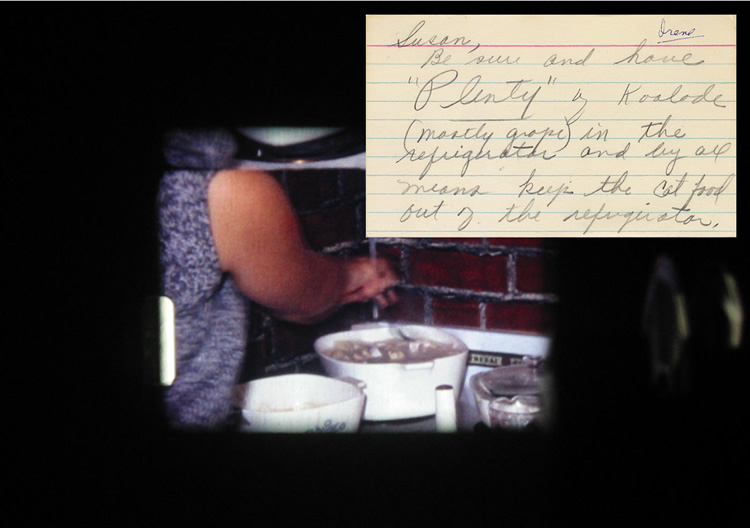 Irene
Susan,
Be sure and have
"Plenty" of Koolade
(mostly grape) in the
refrigerator and by all
means keep the cat food
out of the refrigerator.
GENERAL